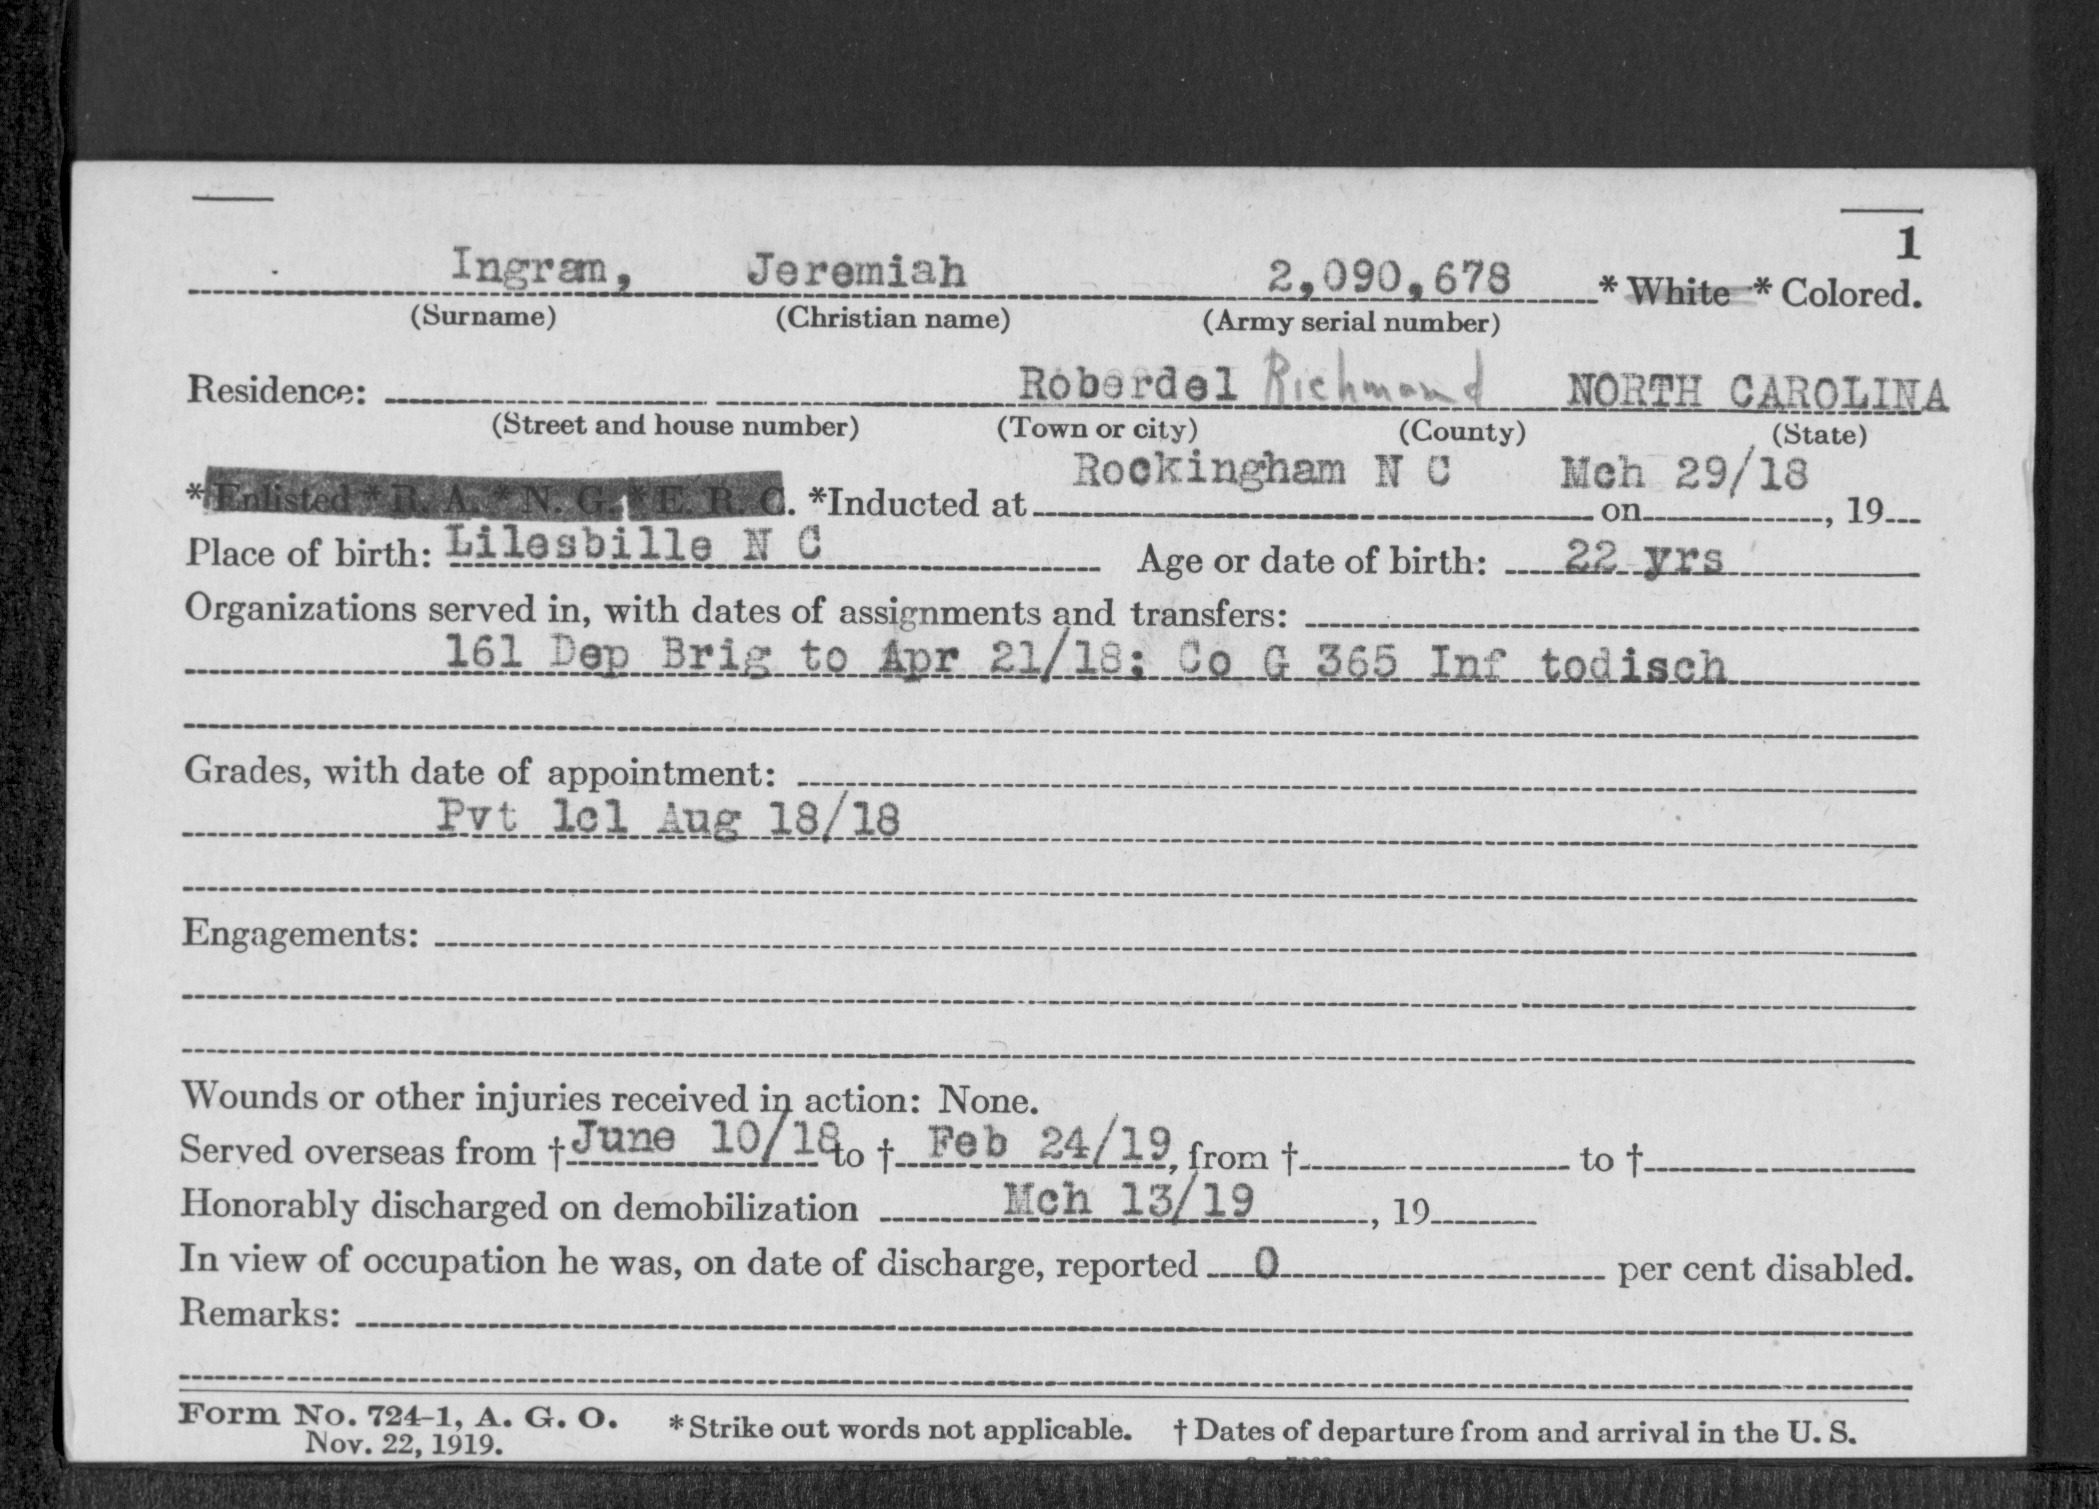 1
Ingram, Jeremiah 2,090,678 * White * Colored.
(Surname) (Christian name) (Army serial number)
Residence: Roberdel Richmond NORTH CAROLINA
(Street and house number) (Town or city) (County) (State)
Rockingham N C Mch 29/18
*Enlisted * R. A. * N. G. * E. R. C. *Inducted at on , 19
Place of birth: Lilesbille N C Age or date of birth: 22 yrs
Organizations served in, with dates of assignments and transfers:
161 Dep Brig to Apr 21/18; Co G 365 Inf todisch
Grades, with date of appointment:
Pvt 1cl Aug 18/18
Engagements:
Wounds or other injuries received in action: None.
Served overseas from † June 10/18 to † Feb 24/19, from † to †
Honorably discharged on demobilization Mch 13/19 , 19
In view of occupation he was, on date of discharge, reported 0 per cent disabled.
Remarks:
Form No. 724-1, A. G. O. * Strike out words not applicable. † Dates of departure from and arrival in the U. S.
Nov. 22, 1919.